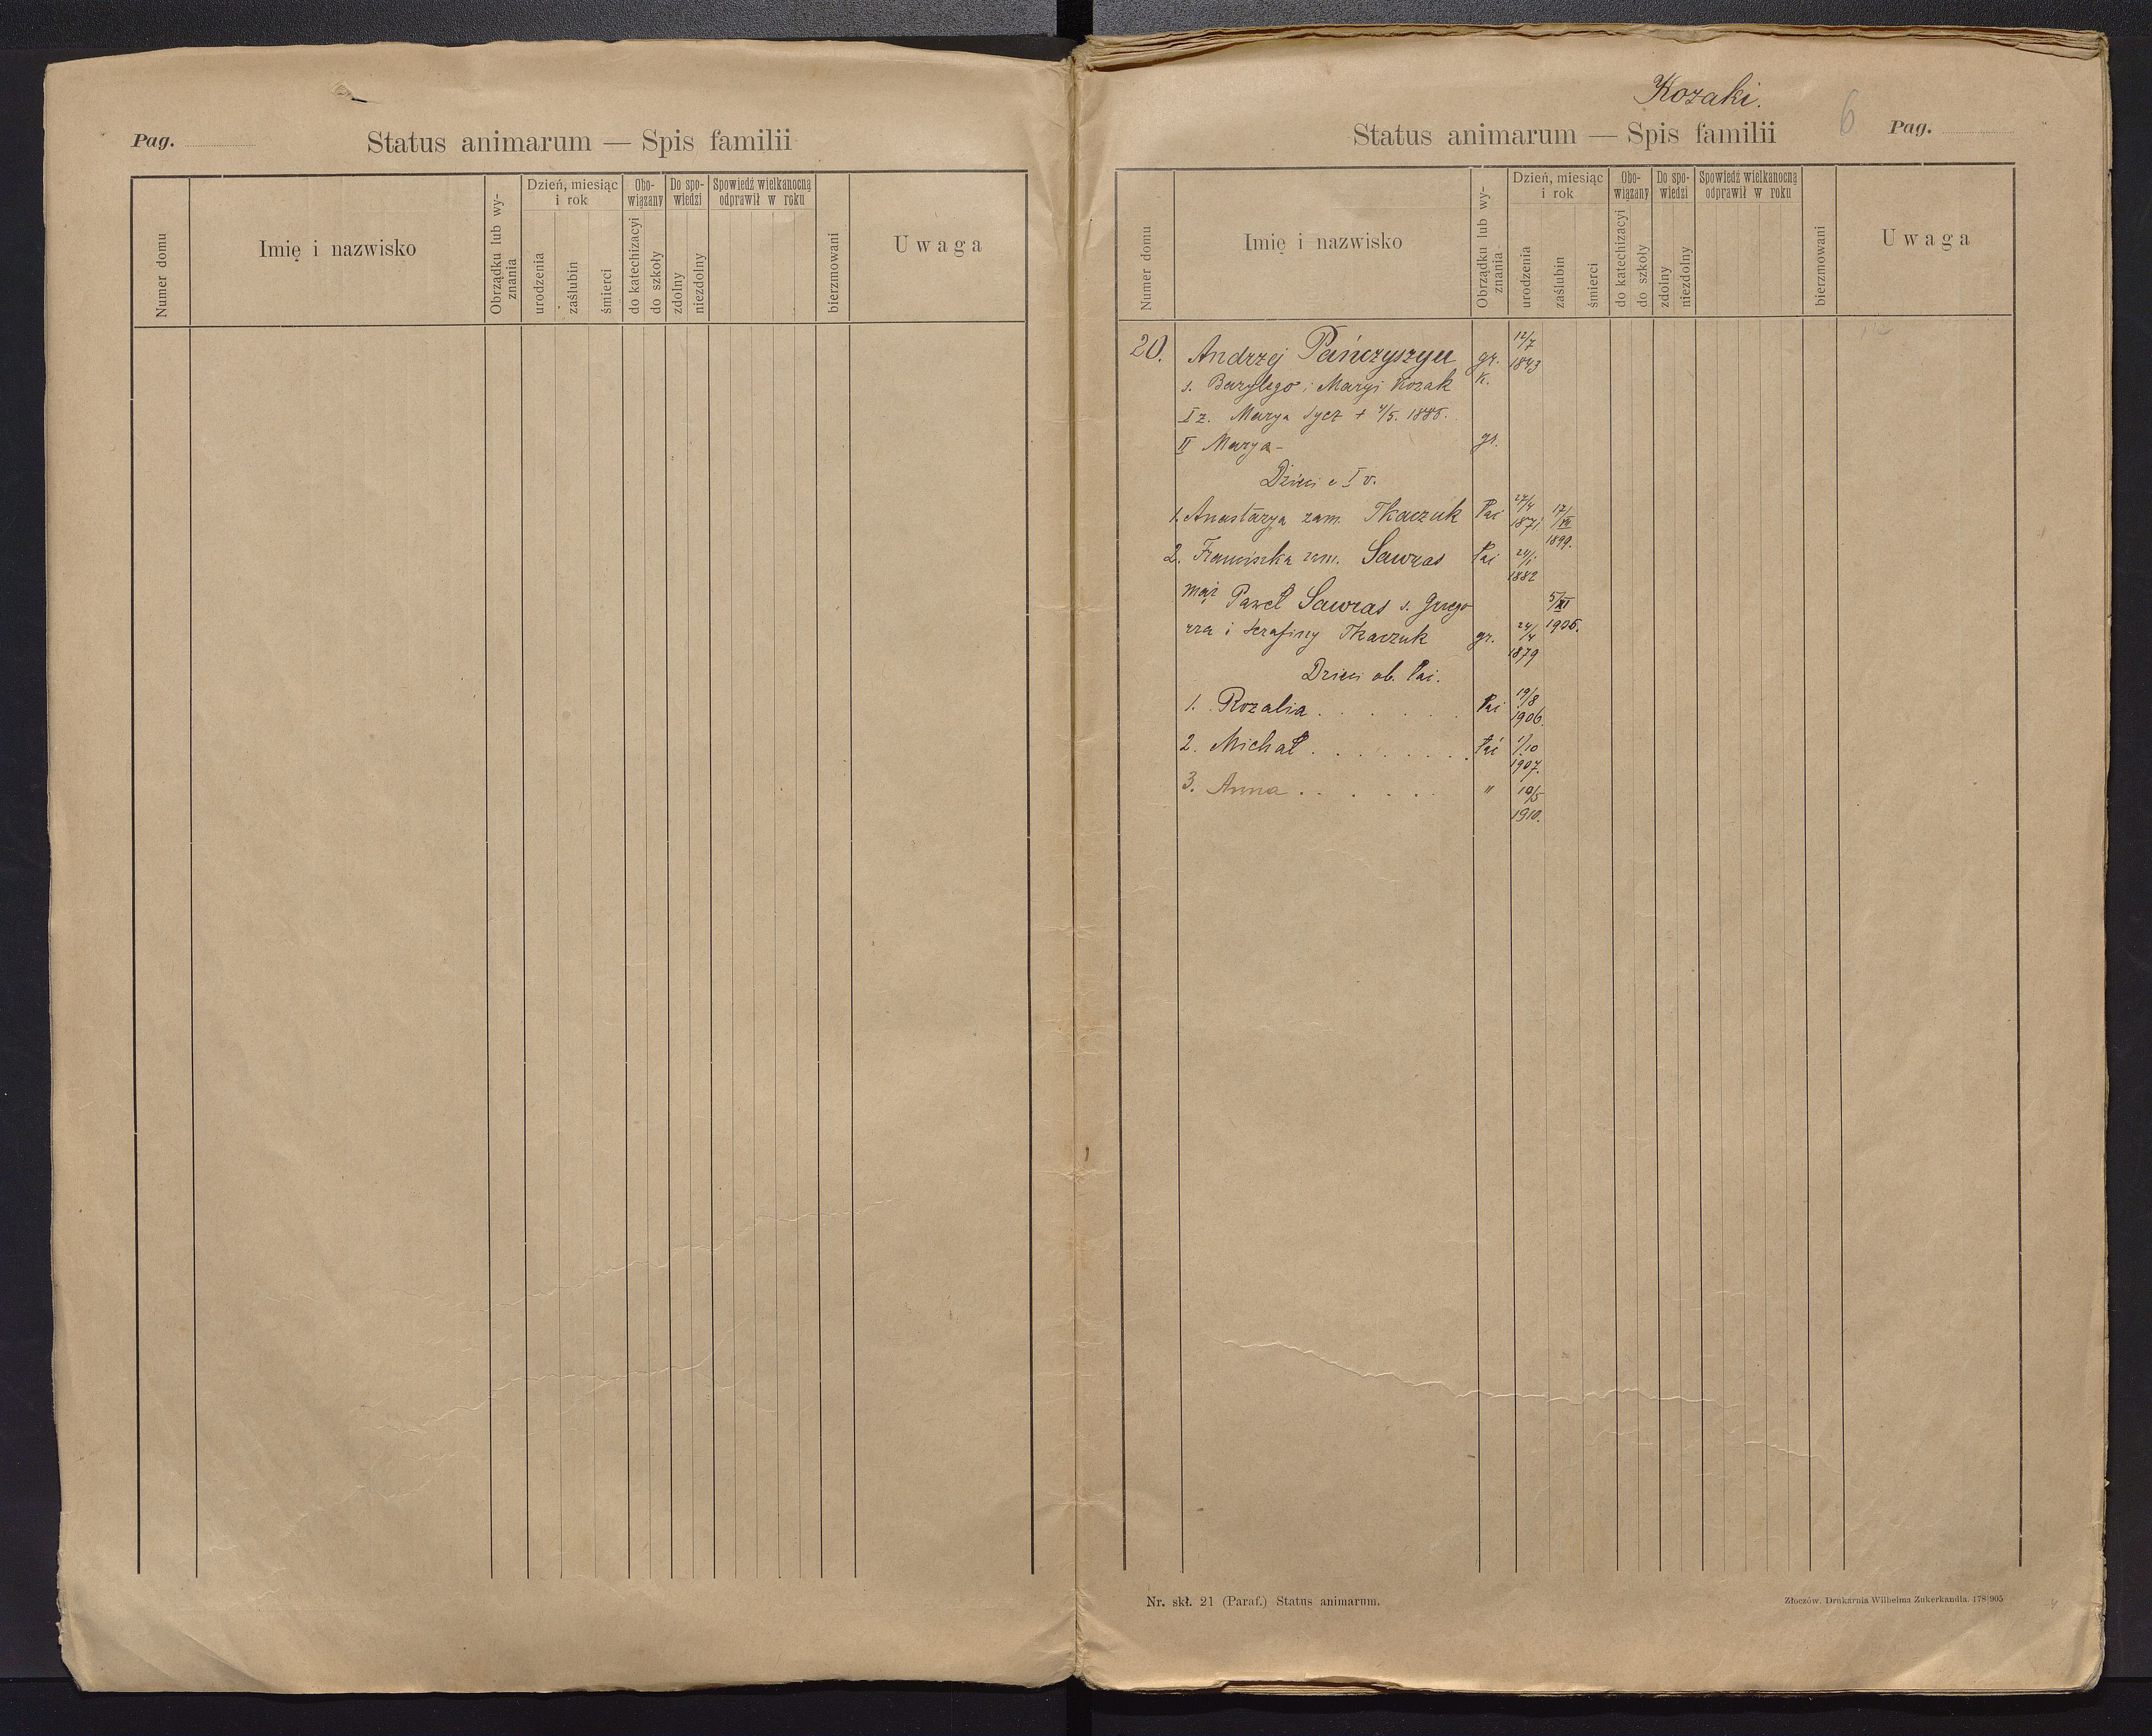 Pag.
Status animarum — Spis familii
Numer domu
Imię i nazwisko
Obrządku lub wy-
znania
Dzień, miesiąc
i rok
urodzenia
zaślubin
śmierci
Obo-
wiązany
do katechizacyi
do szkoły
Do spo-
wiedzi
zdolny
niezdolny
Spowiedź wielkanocną
odprawił w roku
bierzmowani
Uwaga
Kozaki.
Status animarum — Spis familii
6
Pag.
Numer domu
Imię i nazwisko
Obrządku lub wy-
znania
Dzień, miesiąc
i rok
urodzenia
zaślubin
śmierci
Obo-
wiązany
do katechizacyi
do szkoły
Do spo-
wiedzi
zdolny
niezdolny
Spowiedź wielkanocną
odprawił w roku
bierzmowani
Uwaga
20. Andrzej Pańczyszyn gr. 12/7 1843
s. Bazylego i Maryi Kozak k.
I ż. Marya Sycz + 4/5.
II Marya - gr.
Dzieci I v.
1. Anastazya zam. Tkaczuk łać 27/4 1871. 17/XI 1899.
2. Franciszka zam. Sawras łać 24/1 1882
mąż Paweł Sawras s. Grzego 5/XI 1905.
rza i Serafiny Tkaczuk gr. 24/4 1879
Dzieci ob. łać.
1. Rozalia . . . . . łać 19/8 1906.
2. Michał . . . . . . . łać 1/10 1907.
3. Anna . . . . . " 10/5 1910.
Nr. skł. 21 (Paraf.) Status animarum.
Złoczów. Drukarnia Wilhelma Zukerkandla. 178|905